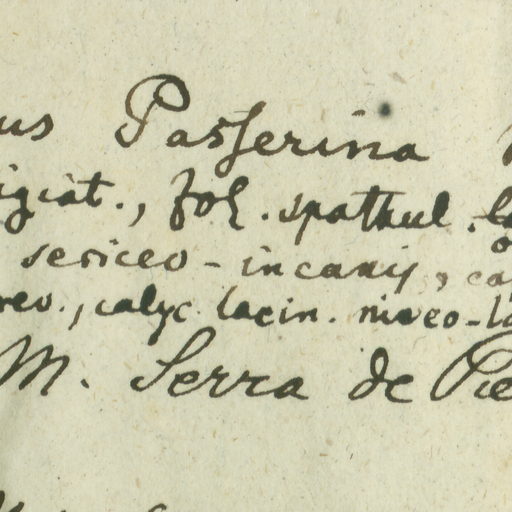 us Passerina
igiat., fol. spathul. la
sericeo-incanis, ca
reo., calyc. lacin. niveo-la
M. Serra de Pie